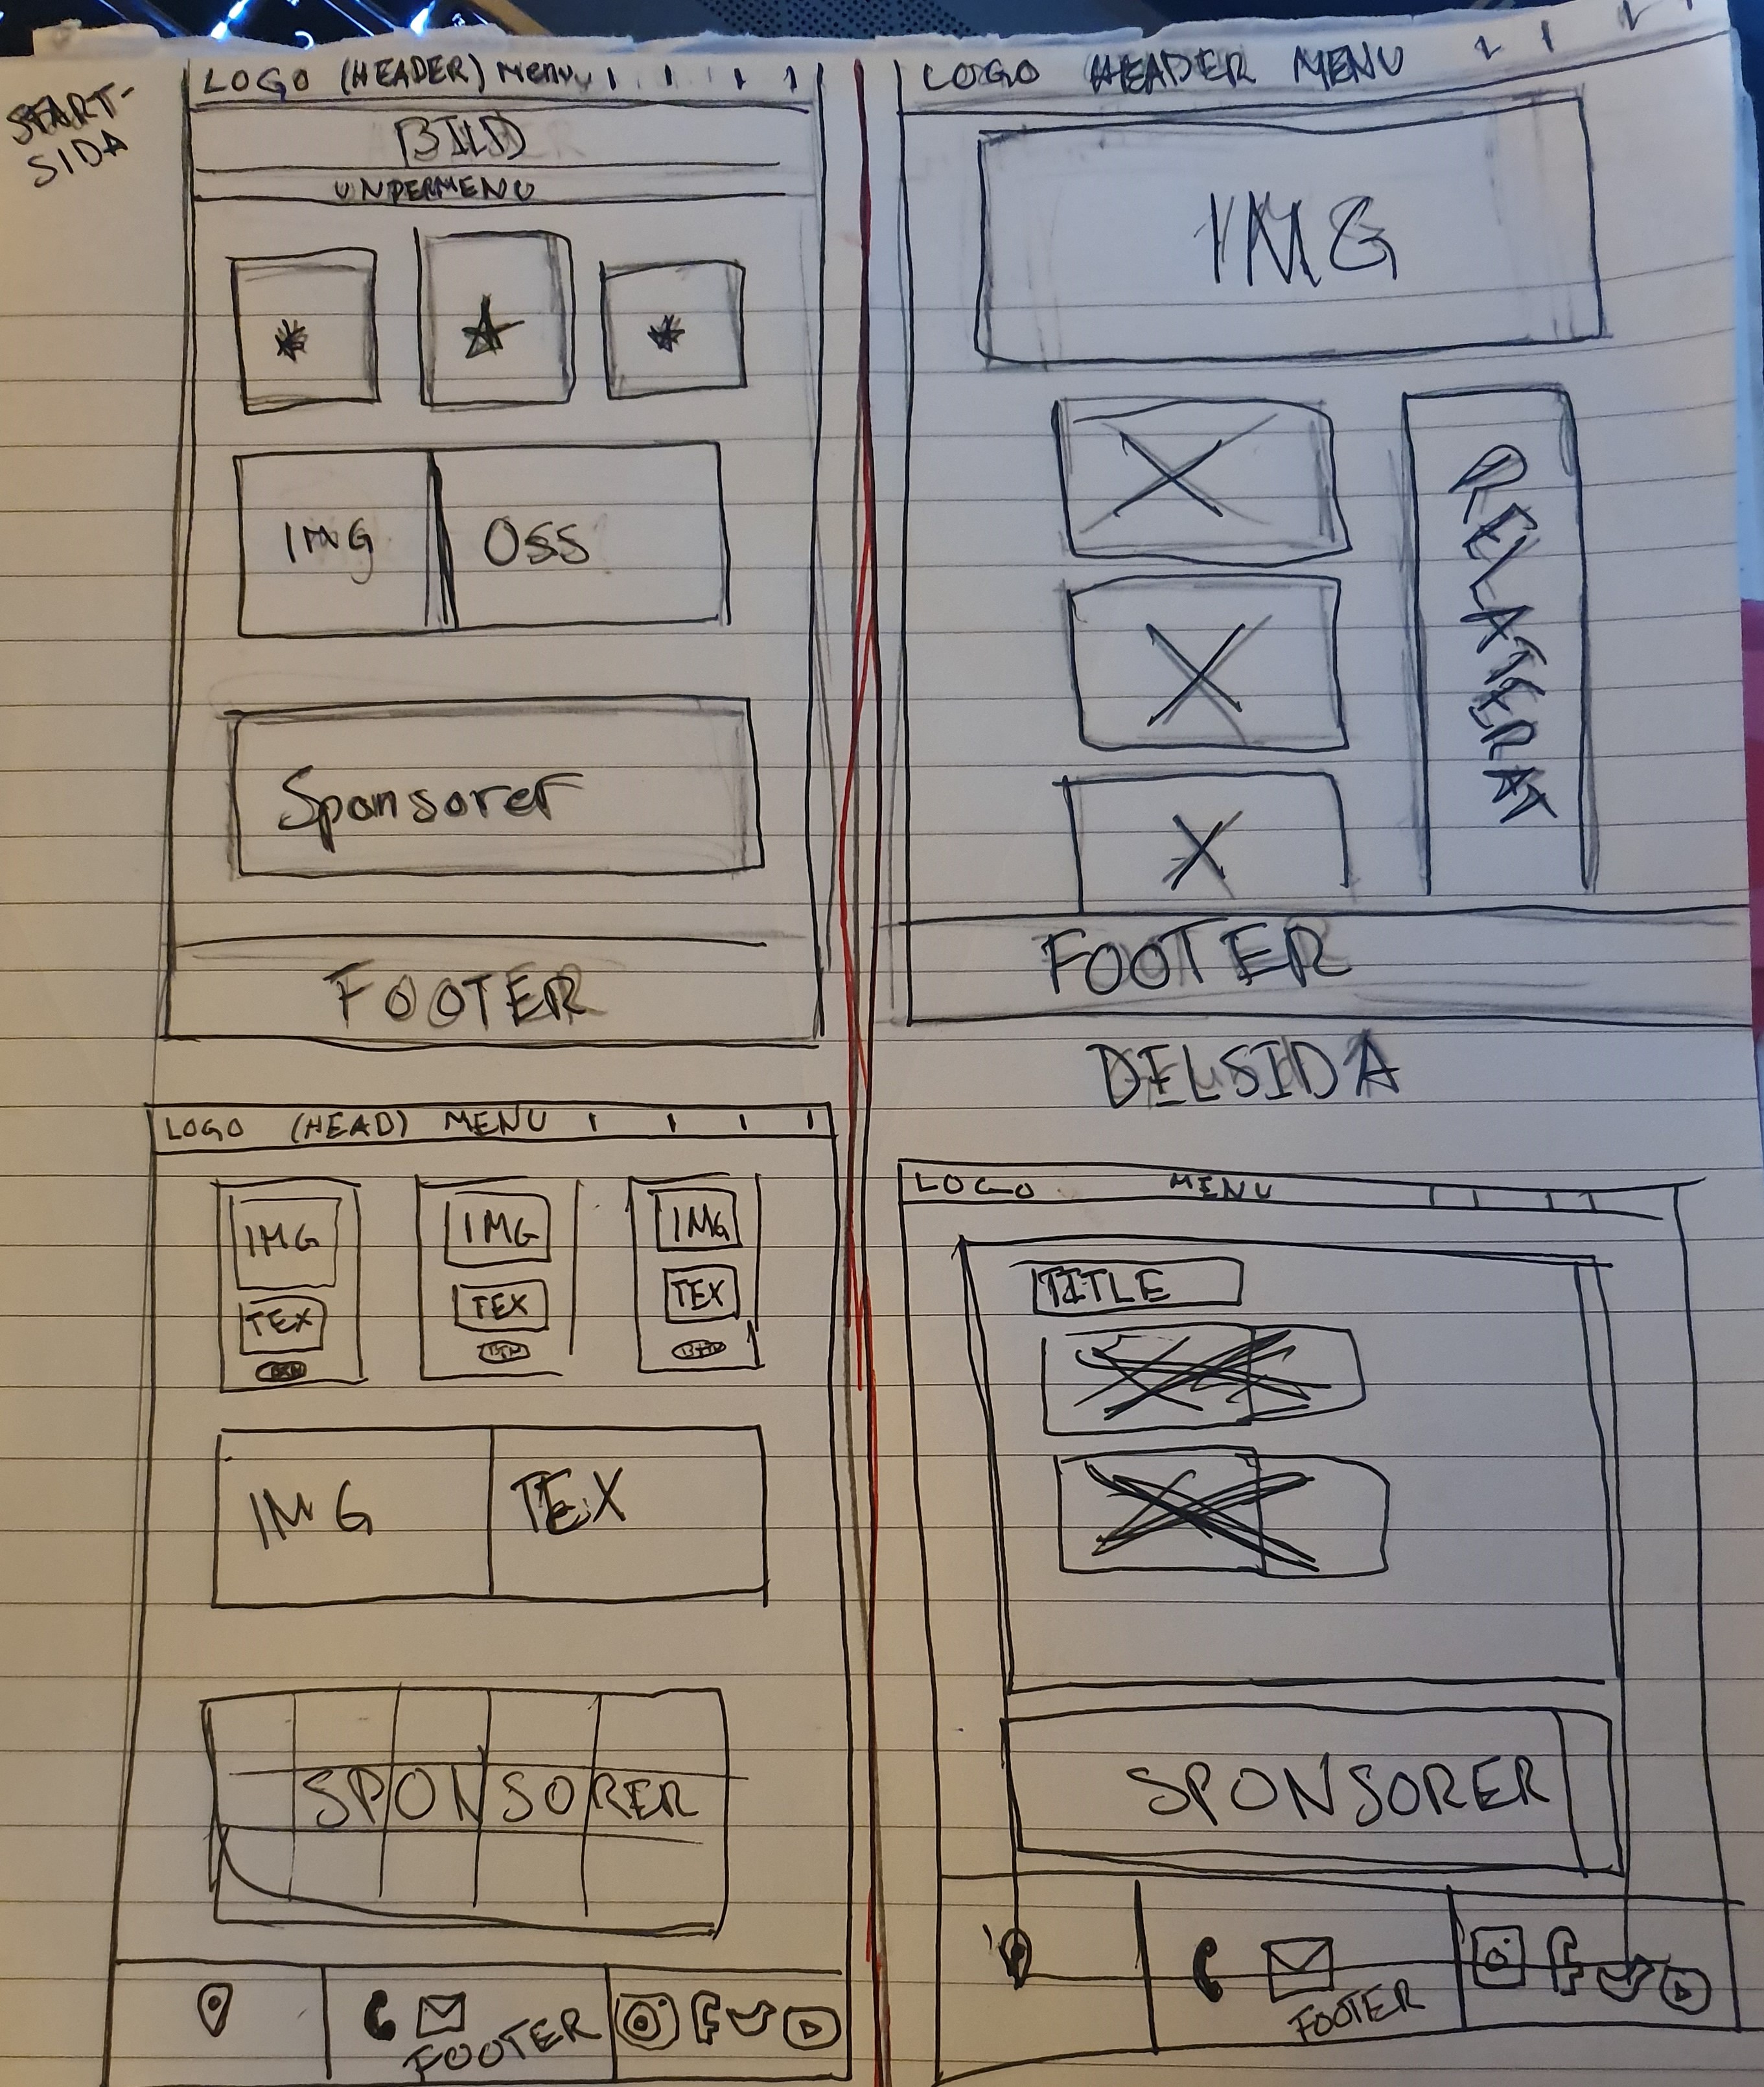 START-
SIDA
LOGO (HEADER) Menu
BILD
UNDERMENU
IMG OSS
Sponsorer
FOOTER
LOGO HEADER MENU
IMG
RELATERAT
FOOTER
DELSIDA
LOGO (HEAD) MENU
IMG IMG IMG
TEX TEX TEX
BTN BTN
IMG TEX
SPONSORER
FOOTER
LOGO MENU
TITLE
SPONSORER
FOOTER